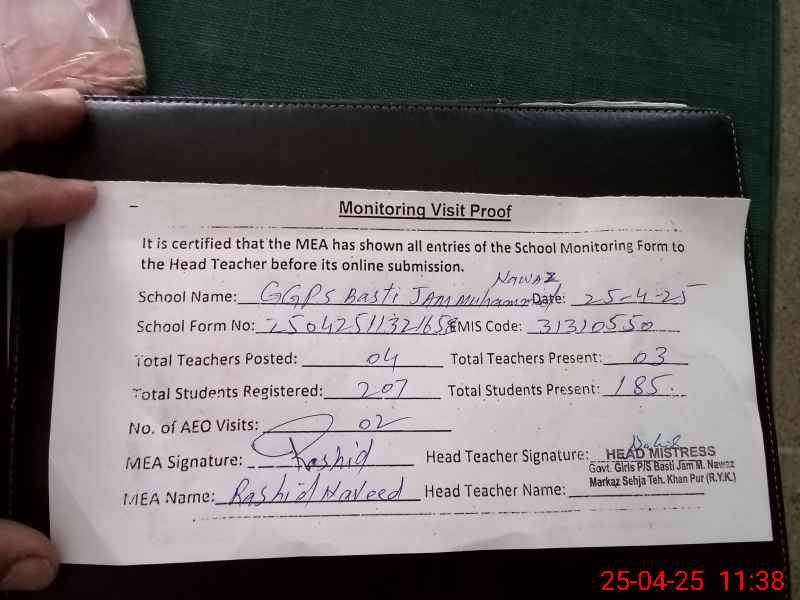 Monitoring Visit Proof
It is certified that the MEA has shown all entries of the School Monitoring Form to
the Head Teacher before its online submission.
School Name: GGPS Basti JAM Muhammad Nawaz Date: 25-4-25
School Form No: 2504251132165 EMIS Code: 31310550
Total Teachers Posted: 04 Total Teachers Present: 03
Total Students Registered: 207 Total Students Present: 185.
No. of AEO Visits: 02
MEA Signature: Rashid Head Teacher Signature:
HEAD MISTRESS
Govt. Girls P/S Basti Jam M. Nawaz
Markaz Sehja Teh. Khan Pur (R.Y.K.)
MEA Name: Rashid Naveed Head Teacher Name:
25-04-25 11:38